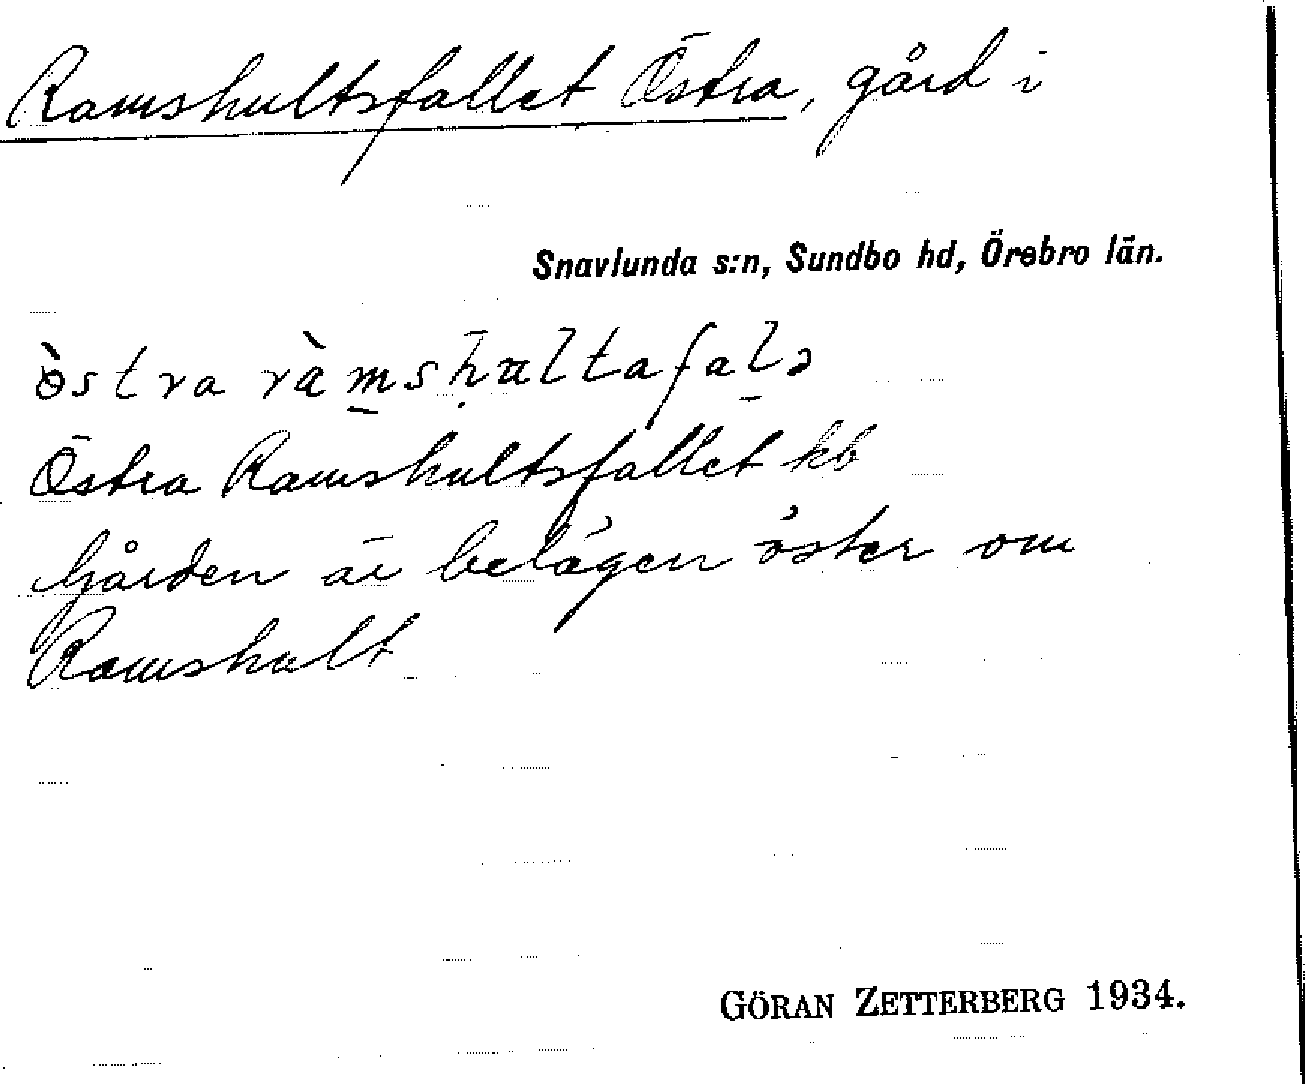 Ramshultsfallet Östra, gård i
Snavlunda s:n, Sundbo hd, Örebro län.
ò̈stra ràm̲shu̅ltafal̲ə
Östra Ramshultsfallet kb
Gården är belägen öster om
Ramshult
GÖRAN ZETTERBERG 1934.